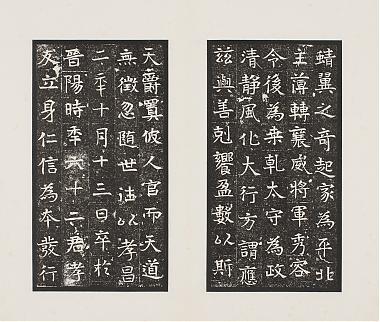 蜻翼之奇起家為平北
主薄轉襄威將軍秀容
令後為乗軋太守為政
清静風化大行方謂應
兹與善剋饗盈數以斯
天爵賓彼人官而天道
無徵忽随世法以孝昌
二年十月十三日卒於
晉陽時年六十二君孝
友立身仁信為本發行